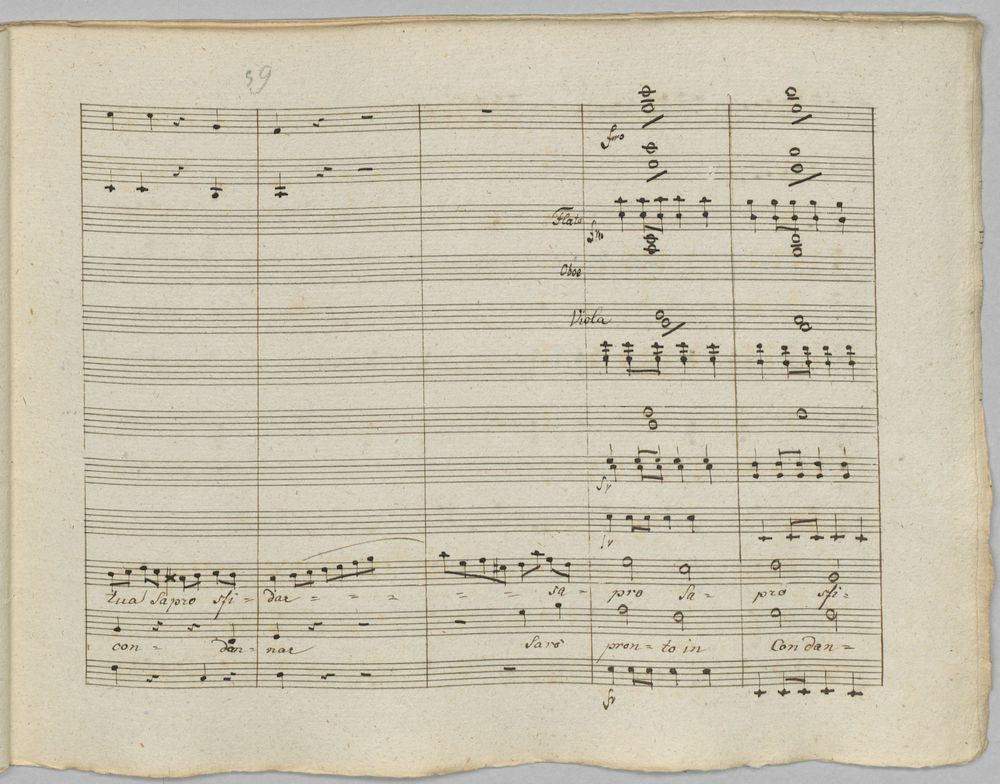 59
fmo
Flati
fmo
Oboe
Viola
fr
fr
tua Sapro sfi= dar = = = = = sa= pro sa= pro sfi=
con= dan= nar Saro pron= to in Con dan=
fr